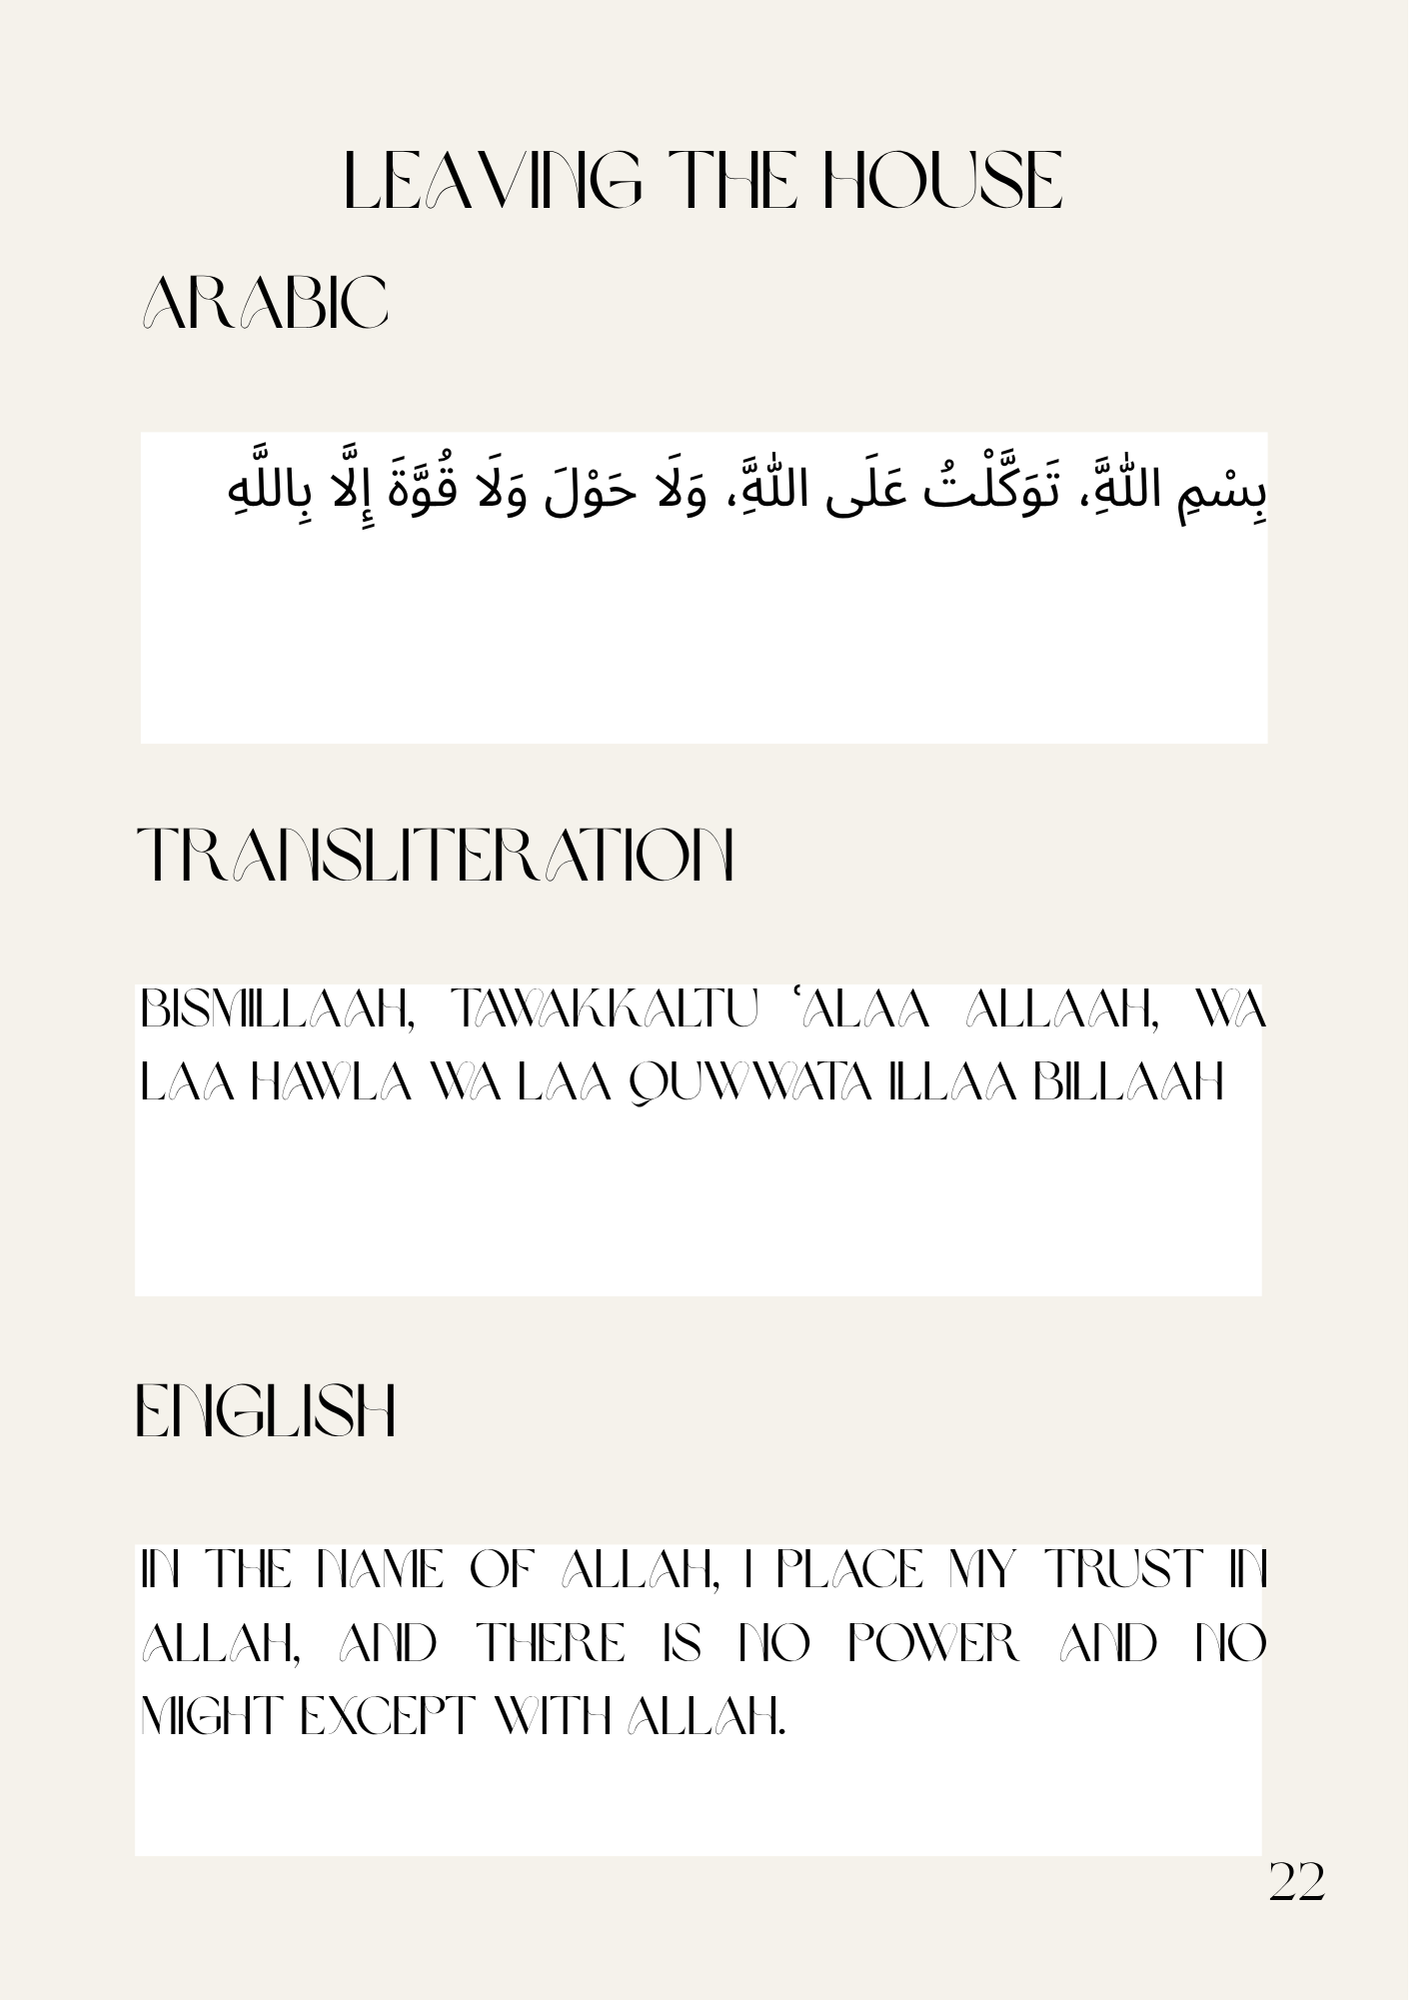 LEAVING THE HOUSE
ARABIC
بِسْمِ اللهَِّ، تَوَكَّلْتُ عَلَى اللهَِّ، وَلَا حَوْلَ وَلَا قُوَّةَ إِلَّا بِاللَّهِ
TRANSLITERATION
BISMILLAAH, TAWAKKALTU ʿALAA ALLAAH, WA
LAA HAWLA WA LAA QUWWATA ILLAA BILLAAH
ENGLISH
IN THE NAME OF ALLAH, I PLACE MY TRUST IN
ALLAH, AND THERE IS NO POWER AND NO
MIGHT EXCEPT WITH ALLAH.
22